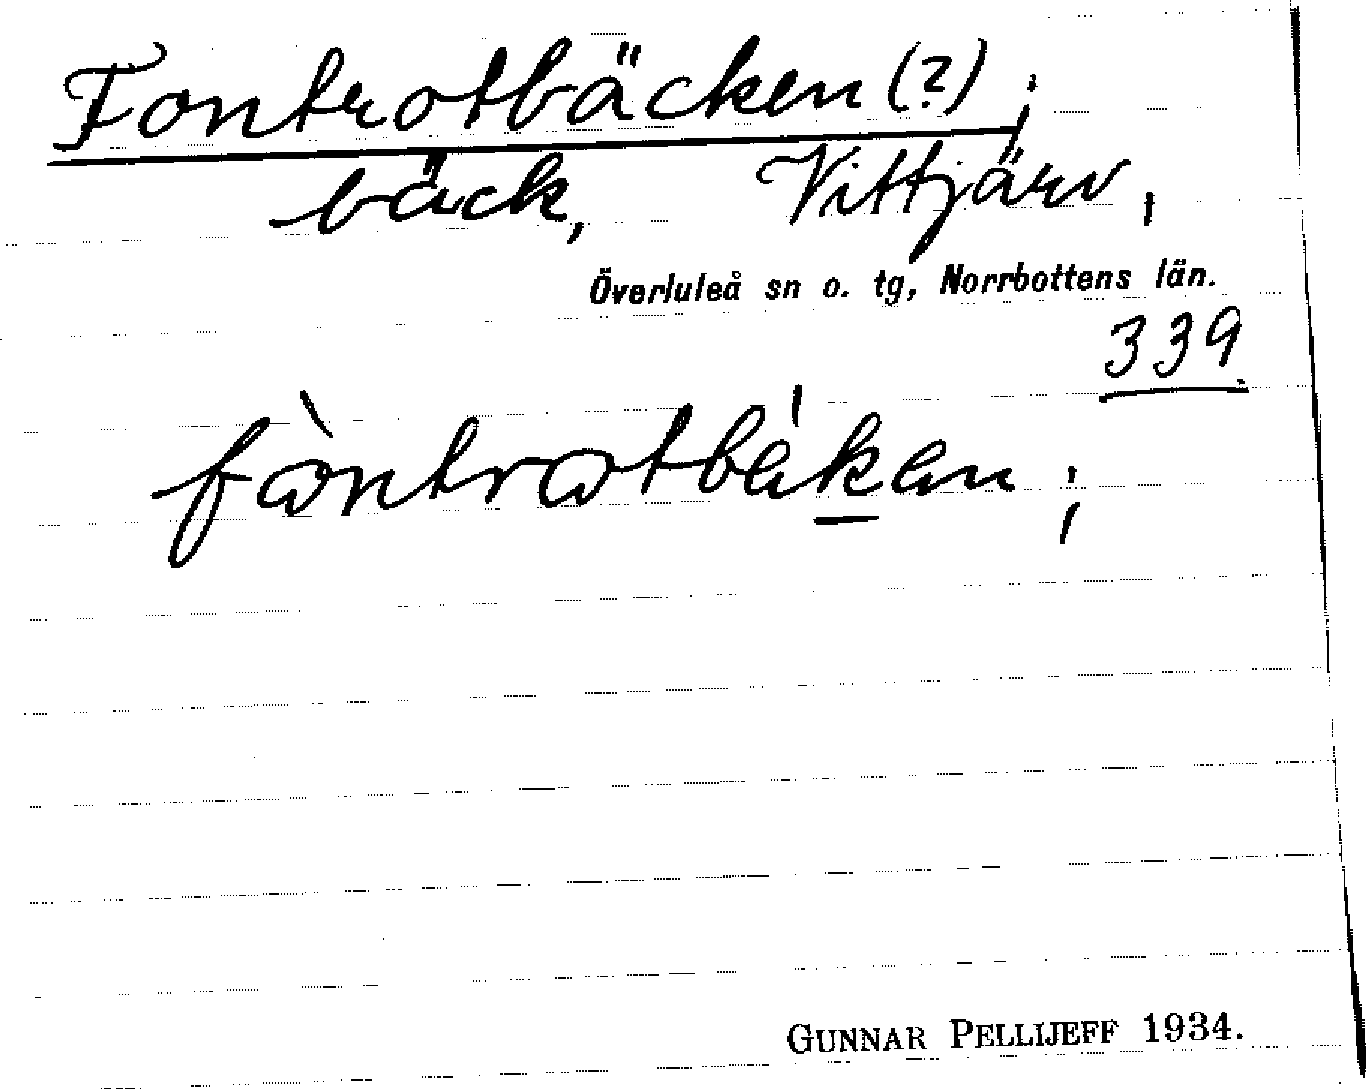 Fontrotbäcken (?);
bäck, Vittjärv,
Överluleå sn o. tg, Norrbottens län.
339.
fòntrotbéken;
GUNNAR PELLIJEFF 1934.